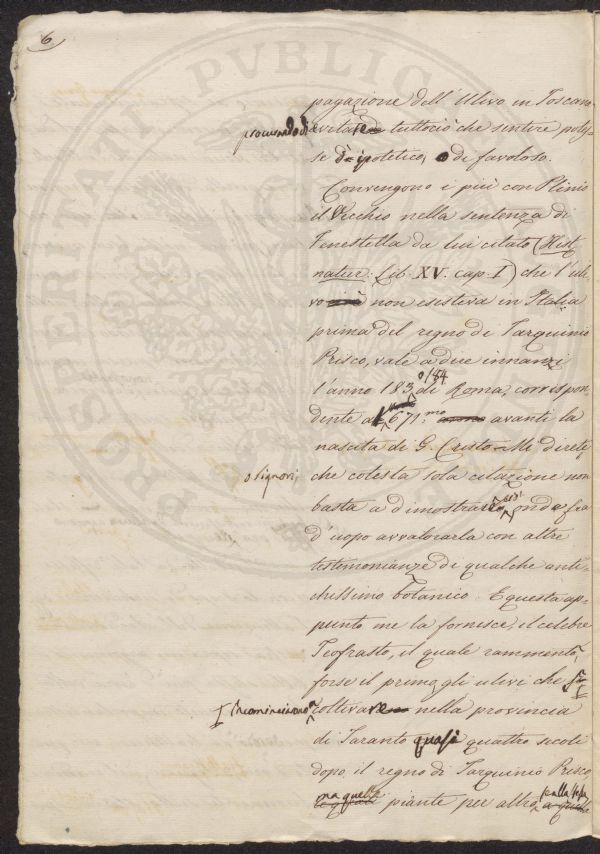 6
pagazione dell' Ulivo in Toscana
procurando di evitare tuttociò che sentire potes-
se d'ipotetico, o di favoloso.
Convengono i più con Plinio
il Vecchio nella sentenza di
Fenestella da lui citato (Hist.
natur: Lib. XV. cap. I) che l'uli-
vo non esisteva in Italia
prima del regno di Tarquinio
Prisco, vale a dire innanzi
l'anno 183 o 184 di Roma, corrispon-
dente al 671.mo avanti la
nascita di G. Cristo. Mi direte,
o Signori, che cotesta sola citazione non
basta a dimostrar ciò, onde fia
d'uopo avvalorarla con altre
testimonianze di qualche anti-
chissimo botanico. E questa ap-
punto me la fornisce, il celebre
Teofrasto, il quale rammentò
forse il primo gli ulivi che si
incominciarono a coltivare nella provincia
di Taranto quasi quattro secoli
dopo il regno di Tarquinio Prisco,
ma quelle piante per altro